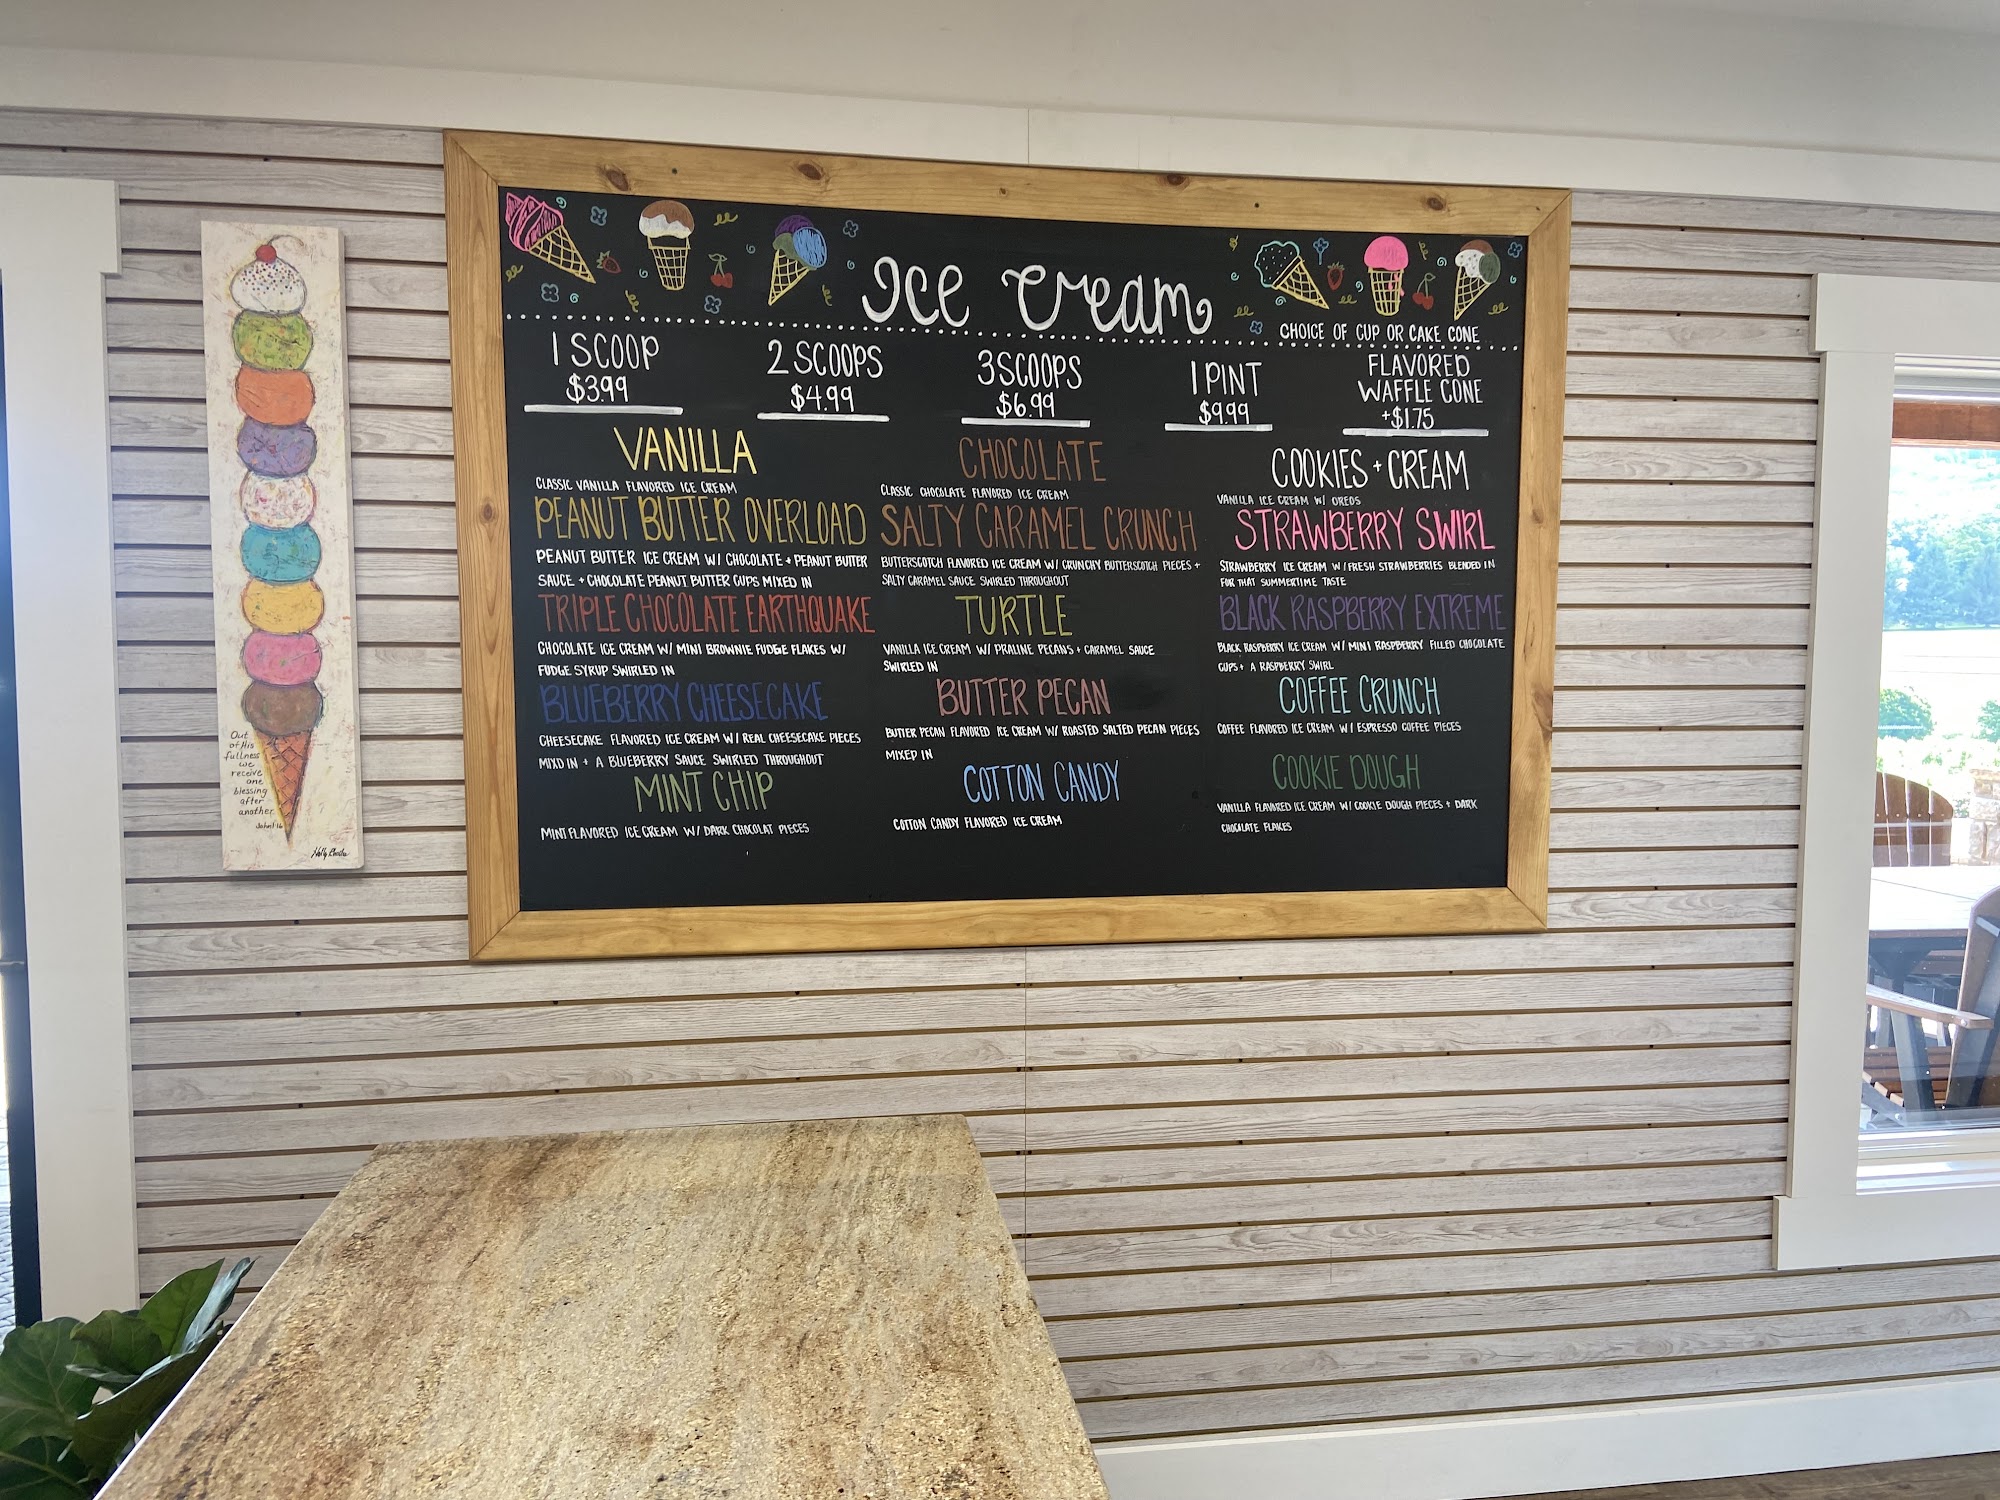 Ice Cream
CHOICE OF CUP OR CAKE CONE
1 SCOOP
$3.99
2 SCOOPS
$4.99
3 SCOOPS
$6.99
1 PINT
$9.99
FLAVORED
WAFFLE CONE
+$1.75
VANILLA
CLASSIC VANILLA FLAVORED ICE CREAM
PEANUT BUTTER OVERLOAD
PEANUT BUTTER ICE CREAM W/ CHOCOLATE + PEANUT BUTTER
SAUCE + CHOCOLATE PEANUT BUTTER CUPS MIXED IN
TRIPLE CHOCOLATE EARTHQUAKE
CHOCOLATE ICE CREAM W/ MINI BROWNIE FUDGE FLAKES W/
FUDGE SYRUP SWIRLED IN
BLUEBERRY CHEESECAKE
CHEESECAKE FLAVORED ICE CREAM W/ REAL CHEESECAKE PIECES
MIXD IN + A BLUEBERRY SAUCE SWIRLED THROUGHOUT
MINT CHIP
MINT FLAVORED ICE CREAM W/ DARK CHOCOLAT PIECES
CHOCOLATE
CLASSIC CHOCOLATE FLAVORED ICE CREAM
SALTY CARAMEL CRUNCH
BUTTERSCOTCH FLAVORED ICE CREAM W/ CRUNCHY BUTTERSCOTCH PIECES +
SALTY CARAMEL SAUCE SWIRLED THROUGHOUT
TURTLE
VANILLA ICE CREAM W/ PRALINE PECANS + CARAMEL SAUCE
SWIRLED IN
BUTTER PECAN
BUTTER PECAN FLAVORED ICE CREAM W/ ROASTED SALTED PECAN PIECES
MIXED IN
COTTON CANDY
COTTON CANDY FLAVORED ICE CREAM
COOKIES + CREAM
VANILLA ICE CREAM W/ OREOS
STRAWBERRY SWIRL
STRAWBERRY ICE CREAM W/ FRESH STRAWBERRIES BLENDED IN
FOR THAT SUMMERTIME TASTE
BLACK RASPBERRY EXTREME
BLACK RASPBERRY ICE CREAM W/ MINI RASPBERRY FILLED CHOCOLATE
CUPS + A RASPBERRY SWIRL
COFFEE CRUNCH
COFFEE FLAVORED ICE CREAM W/ ESPRESSO COFFEE PIECES
COOKIE DOUGH
VANILLA FLAVORED ICE CREAM W/ COOKIE DOUGH PIECES + DARK
CHOCLATE FLAKES
Out
of His
fullness
we
receive
one
blessing
after
another
John 1:16